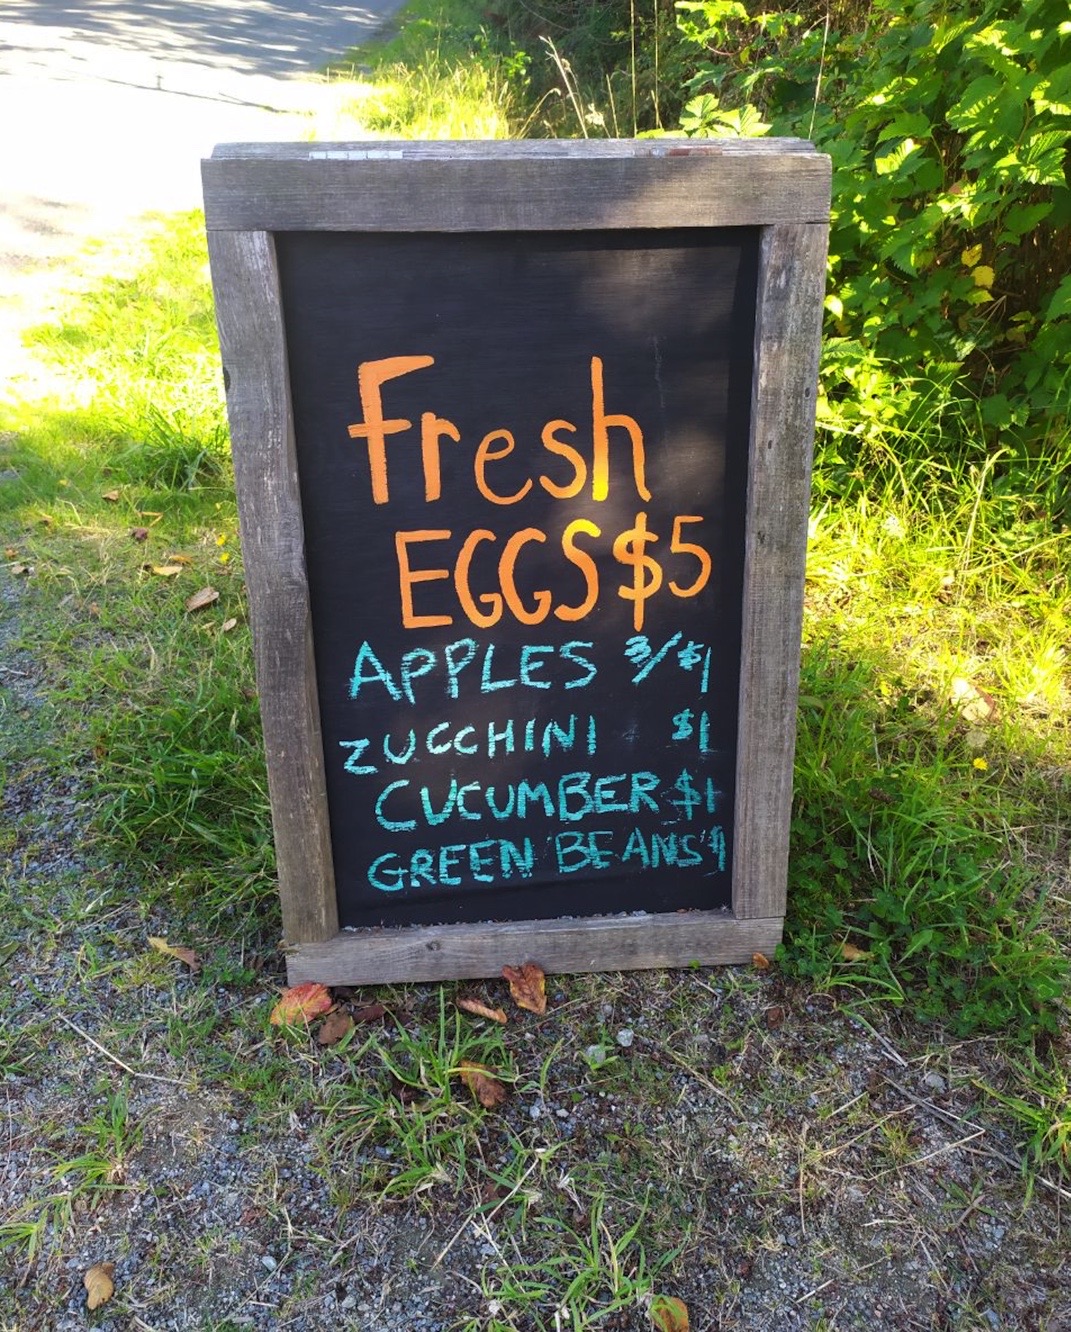 Fresh
EGGS $5
APPLES 3/$1
ZUCCHINI $1
CUCUMBER $1
GREEN BEANS $1